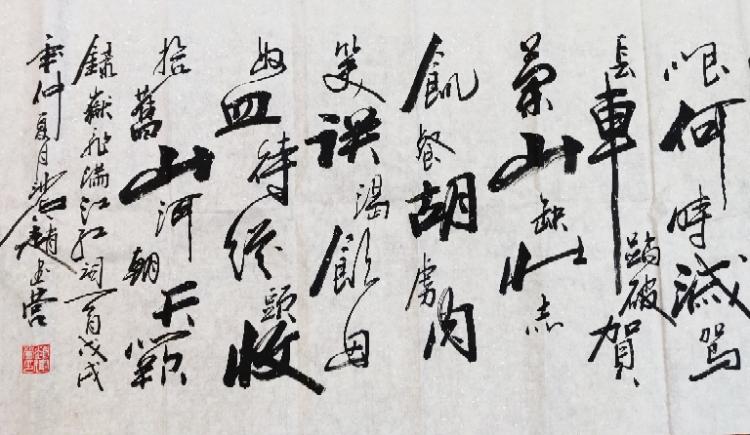 恨何時滅駕
長車踏破賀
蘭山缺壯志
飢餐胡虜肉
笑談渴飲匈
奴血待從頭收
拾舊山河朝天闕
錄嶽飛滿江紅詞一首戊戌
年仲夏月趙玉營